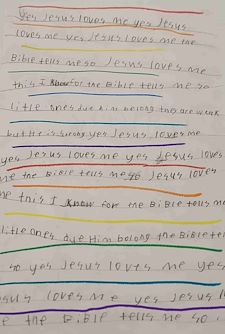 yes Jesus loves me yes Jesus
loves me yes Jesus loves me the
Bible tells me so Jesus loves me
this I know for the Bible tells me so
little ones due him belong they are weak
but He is strong yes Jesus loves me
yes Jesus loves me yes Jesus loves
me the Bible tells me so Jesus loves
me this I know for the Bible tells me
little ones due Him belong the Bible tells
so yes Jesus loves me yes
sus loves me yes Jesus loves
e the Bible tells me so.